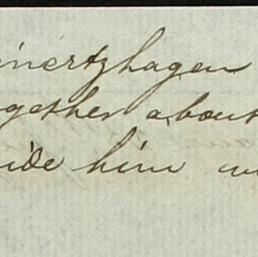 inertzhagen
ogether about
ide him